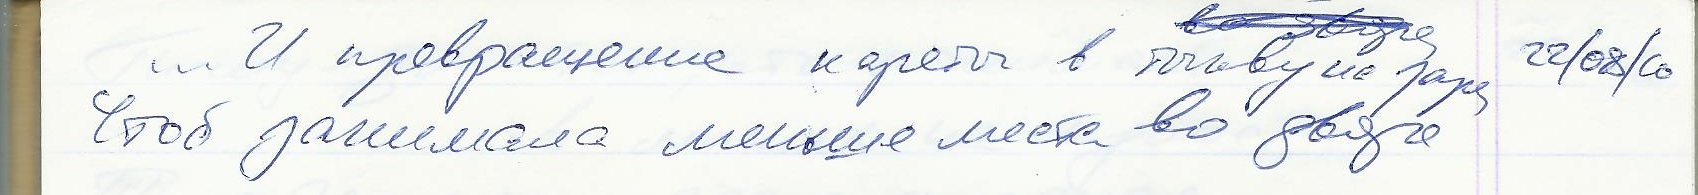 ... И превращение кареты в тыкву на заре 22/08/10
Чтоб занимала меньше места во дворе